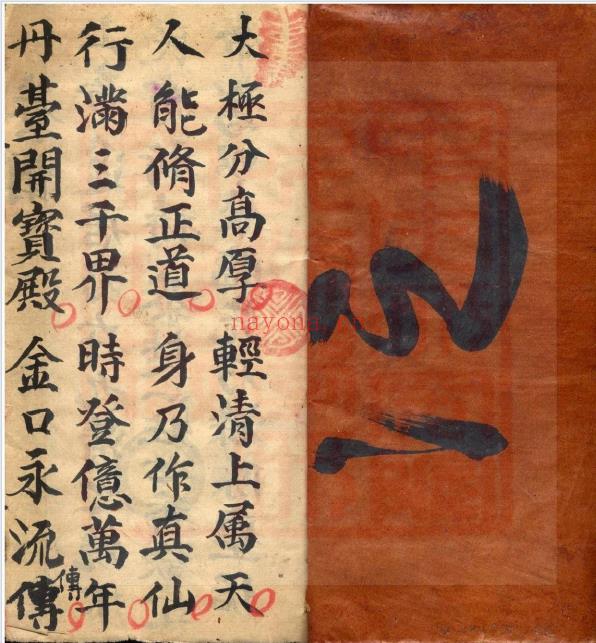 大極分高厚 輕清上属天
人能脩正道 身乃作真仙
行滿三千界 時登億萬年
丹臺開寶殿 金口永流傳
傳
nayona.cn